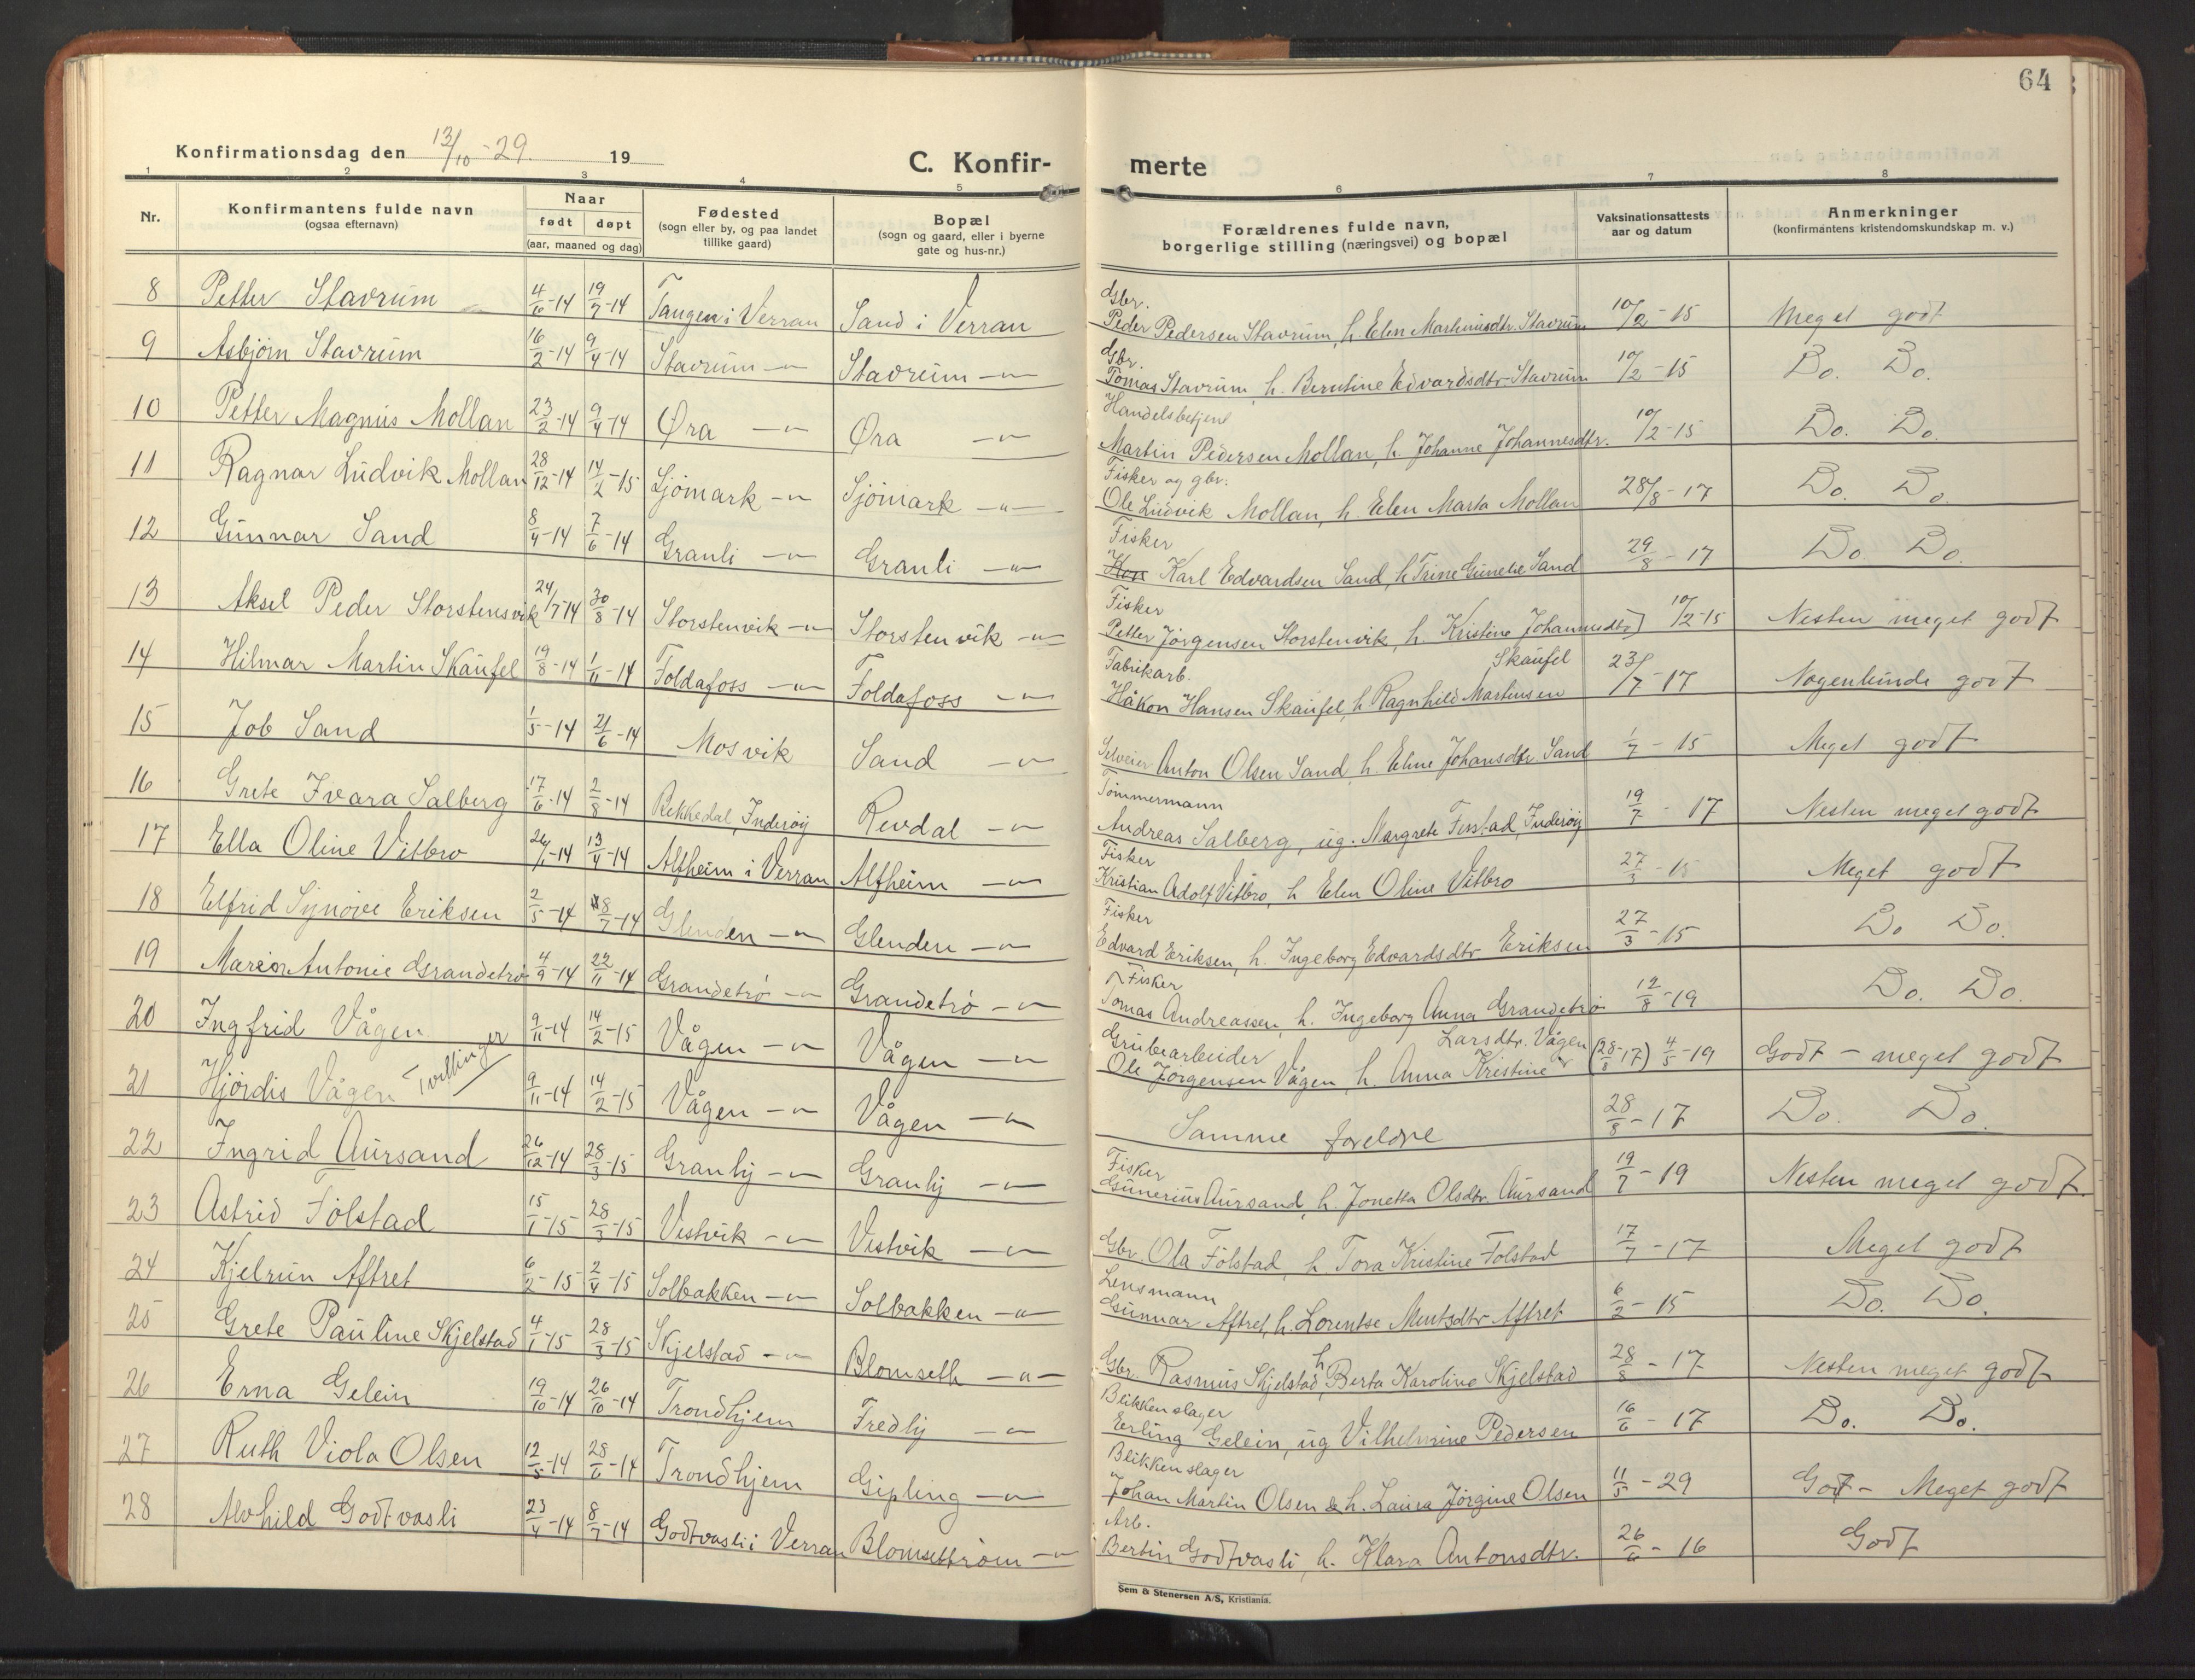 64
Konfirmationsdag den 13/10-29. 19
C. Konfir- merte
1 2 3 4 5 6 7 8
Nr. Konfirmantens fulde navn (ogsaa efternavn) Naar født døpt (aar, maaned og dag) Fødested (sogn eller by, og paa landet tillike gaard) Bopæl (sogn og gaard, eller i byerne gate og hus-nr.) Forældrenes fulde navn, borgerlige stilling (næringsvei) og bopæl Vaksinationsattests aar og datum Anmerkninger (konfirmantens kristendomskundskap m. v.)
8 Petter Stavrum 4/6-14 19/7-14 Tangen i Verran Sand i Verran Gbr. Peder Pedersen Stavrum, h. Elen Martinusdtr. Stavrum 10/2-15 Meget godt
9 Asbjørn Stavrum 16/2-14 9/4-14 Stavrum -"- Stavrum -"- Gbr. Tomas Stavrum, h. Berntine Edvardsdtr Stavrum 10/2-15 Do. Do.
10 Petter Magnus Mollan 23/2-14 9/4-14 Øra -"- Øra -"- Handelsbetjent Martin Pedersen Mollan, h. Johanne Johannesdtr. 10/2-15 Do. Do.
11 Ragnar Ludvik Mollan 28/12-14 14/2-15 Sjömark -"- Sjömark -"- Fisker og gbr. Ole Ludvik Mollan, h. Elen Marta Mollan 28/8-17 Do. Do.
12 Gunnar Sand 8/4-14 7/6-14 Granli -"- Granli -"- Fisker Karl Edvardsen Sand, h Trine Gunelie Sand 29/8-17 Do. Do.
13 Aksel Peder Storstensvik 24/7-14 30/8-14 Storstenvik -"- Storstenvik -"- Fisker Petter Jörgensen Storstenvik, h. Kristine Johannesdtr 10/2-15 Nesten meget godt
14 Hilmar Martin Skaufel 19/8-14 1/11-14 Foldafoss -"- Foldafoss -"- Fabrikarb. Håkon Hansen Skaufel, h Ragnhild Martinsen Skaufel 23/7-17 Nogenlunde godt
15 Job Sand 1/5-14 21/6-14 Mosvik Sand -"- Selveier Anton Olsen Sand, h. Eline Johansdtr Sand 1/7-15 Meget godt
16 Grete Ivara Salberg 17/6-14 2/8-14 Rekkedal, Inderøy Revdal -"- Tömmermann Andreas Salberg, ug. Margrete Festad, Inderøy 19/7-17 Nesten meget godt
17 Ella Oline Vitbro 26/1-14 13/4-14 Alfheim i Verran Alfheim -"- Fisker Kristian Adolf Vitbro, h Elen Oline Vitbro 27/3-15 Meget godt
18 Elfrid Synöve Eriksen 2/5-14 8/7-14 Glenden -"- Glenden -"- Fisker Edvard Eriksen, h. Ingeborg Edvardsdtr Eriksen 27/3-15 Do Do.
19 Marion Antonie Grandetrö 4/9-14 22/11-14 Grandetrö -"- Grandetrö -"- Fisker Tomas Andreassen, h. Ingeborg Anna Grandetrö 12/8-19 Do. Do.
20 Ingfrid Vågen 9/11-14 14/2-15 Vågen -"- Vågen -"- Grubearbeider Ole Jörgensen Vågen, h. Anna Kristine Larsdtr. Vågen (28/8-17) 4/5-19 Godt - meget godt
21 Hjördis Vågen Tvillinger 9/11-14 14/2-15 Vågen -"- Vågen -"- Samme foreldre 28/8-17 Do. Do.
22 Ingrid Aursand 26/12-14 28/3-15 Granly -"- Granly -"- Fisker Gunerius Aursand, h. Jonetta Olsdtr. Aursand 19/7-19 Nesten meget godt.
23 Astrid Fölstad 15/1-15 28/3-15 Vestvik -"- Vestvik -"- Gbr. Ola Fölstad, h. Tora Kristine Fölstad 17/7-17 Meget godt
24 Kjelrun Aftret 6/2-15 2/4-15 Solbakken -"- Solbakken -"- Lensmann Gunnar Aftret, h. Lorentse Mentsdtr Aftret 6/2-15 Do. Do.
25 Grete Pauline Skjelstad 4/1-15 28/3-15 Skjelstad -"- Blomseth -"- Gbr. Rasmus Skjelstad, h Berta Karoline Skjelstad 28/8-17 Nesten meget godt
26 Erna Gelein 19/10-14 26/10-14 Trondhjem Fredly -"- Blikkenslager Erling Gelein, ug Vilhelmine Pedersen 16/6-17 Do. Do.
27 Ruth Viola Olsen 12/5-14 28/6-14 Trondhjem Gipling -"- Blikkenslager Johan Martin Olsen & h. Laura Jörgine Olsen 11/5-29 Godt - Meget godt
28 Alvhild Godtvasli 23/4-14 8/7-14 Godtvasli i Verran Blomsetröm -"- Arb. Bertin Godtvasli, h. Klara Antonsdtr. 26/6-16 Godt
Sem & Stenersen A/S, Kristiania.